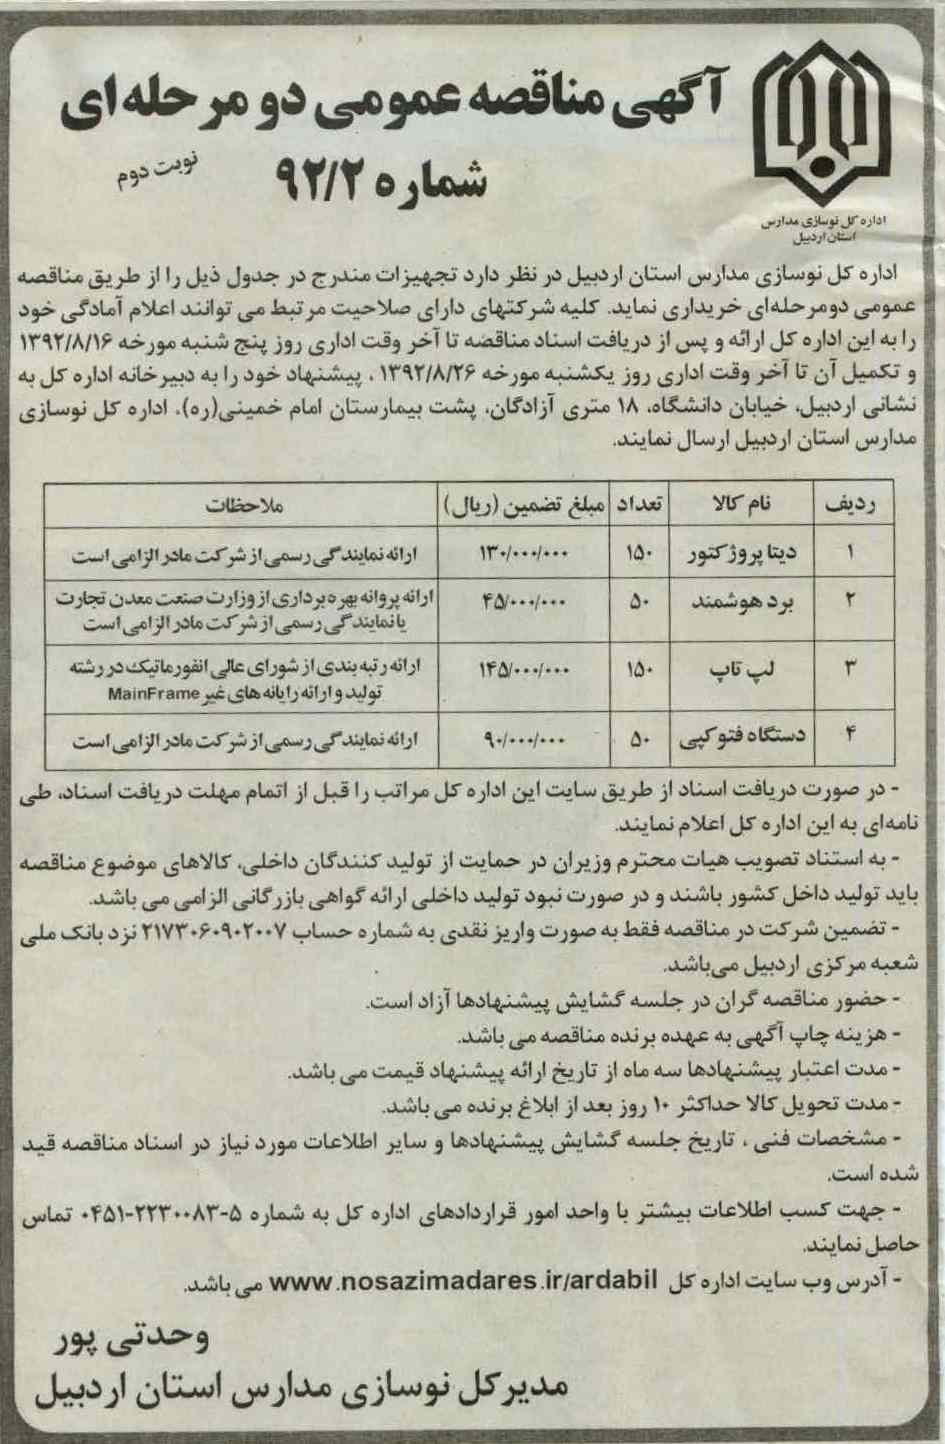 آگهی مناقصه عمومی دو مرحله‌ای
شماره ۹۲/۲
نوبت دوم
اداره کل نوسازی مدارس
استان اردبیل
اداره کل نوسازی مدارس استان اردبیل در نظر دارد تجهیزات مندرج در جدول ذیل را از طریق مناقصه
عمومی دومرحله‌ای خریداری نماید. کلیه شرکتهای دارای صلاحیت مرتبط می توانند اعلام آمادگی خود
را به این اداره کل ارائه و پس از دریافت اسناد مناقصه تا آخر وقت اداری روز پنج شنبه مورخه ۱۳۹۲/۸/۱۶
و تکمیل آن تا آخر وقت اداری روز یکشنبه مورخه ۱۳۹۲/۸/۲۶ ، پیشنهاد خود را به دبیرخانه اداره کل به
نشانی اردبیل، خیابان دانشگاه، ۱۸ متری آزادگان، پشت بیمارستان امام خمینی(ره)، اداره کل نوسازی
مدارس استان اردبیل ارسال نمایند.
ردیف نام کالا تعداد مبلغ تضمین (ریال) ملاحظات
۱ دیتا پروژکتور ۱۵۰ ۱۳۰/۰۰۰/۰۰۰ ارائه نمایندگی رسمی از شرکت مادر الزامی است
۲ برد هوشمند ۵۰ ۴۵/۰۰۰/۰۰۰ ارائه پروانه بهره برداری از وزارت صنعت معدن تجارت
یا نمایندگی رسمی از شرکت مادر الزامی است
۳ لپ تاپ ۱۵۰ ۱۴۵/۰۰۰/۰۰۰ ارائه رتبه بندی از شورای عالی انفورماتیک در رشته
تولید و ارائه رایانه های غیر MainFrame
۴ دستگاه فتوکپی ۵۰ ۹۰/۰۰۰/۰۰۰ ارائه نمایندگی رسمی از شرکت مادر الزامی است
- در صورت دریافت اسناد از طریق سایت این اداره کل مراتب را قبل از اتمام مهلت دریافت اسناد، طی
نامه‌ای به این اداره کل اعلام نمایند.
- به استناد تصویب هیات محترم وزیران در حمایت از تولید کنندگان داخلی، کالاهای موضوع مناقصه
باید تولید داخل کشور باشند و در صورت نبود تولید داخلی ارائه گواهی بازرگانی الزامی می باشد.
- تضمین شرکت در مناقصه فقط به صورت واریز نقدی به شماره حساب ۲۱۷۳۰۶۰۹۰۲۰۰۷ نزد بانک ملی
شعبه مرکزی اردبیل می‌باشد.
- حضور مناقصه گران در جلسه گشایش پیشنهادها آزاد است.
- هزینه چاپ آگهی به عهده برنده مناقصه می باشد.
- مدت اعتبار پیشنهادها سه ماه از تاریخ ارائه پیشنهاد قیمت می باشد.
- مدت تحویل کالا حداکثر ۱۰ روز بعد از ابلاغ برنده می باشد.
- مشخصات فنی ، تاریخ جلسه گشایش پیشنهادها و سایر اطلاعات مورد نیاز در اسناد مناقصه قید
شده است.
- جهت کسب اطلاعات بیشتر با واحد امور قراردادهای اداره کل به شماره ۵-۲۲۳۰۰۸۳-۰۴۵۱ تماس
حاصل نمایند.
- آدرس وب سایت اداره کل www.nosazimadares.ir/ardabil می باشد.
وحدتی پور
مدیرکل نوسازی مدارس استان اردبیل